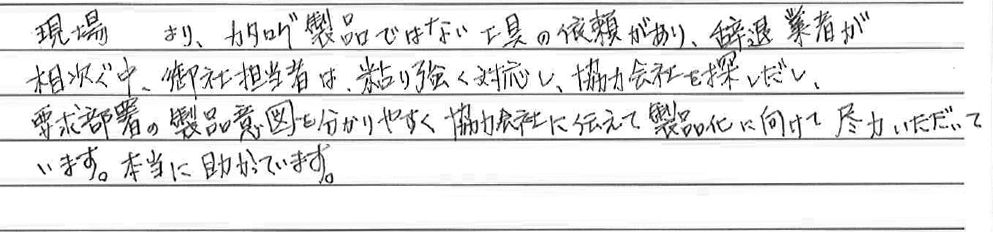 現場　より、カタログ製品ではない工具の依頼があり、辞退業者が
相次ぐ中、御社担当者は、粘り強く対応し、協力会社を探しだし、
要求部署の製品意図を分かりやすく協力会社に伝えて製品化に向けて尽力いただいて
います。本当に助かっています。